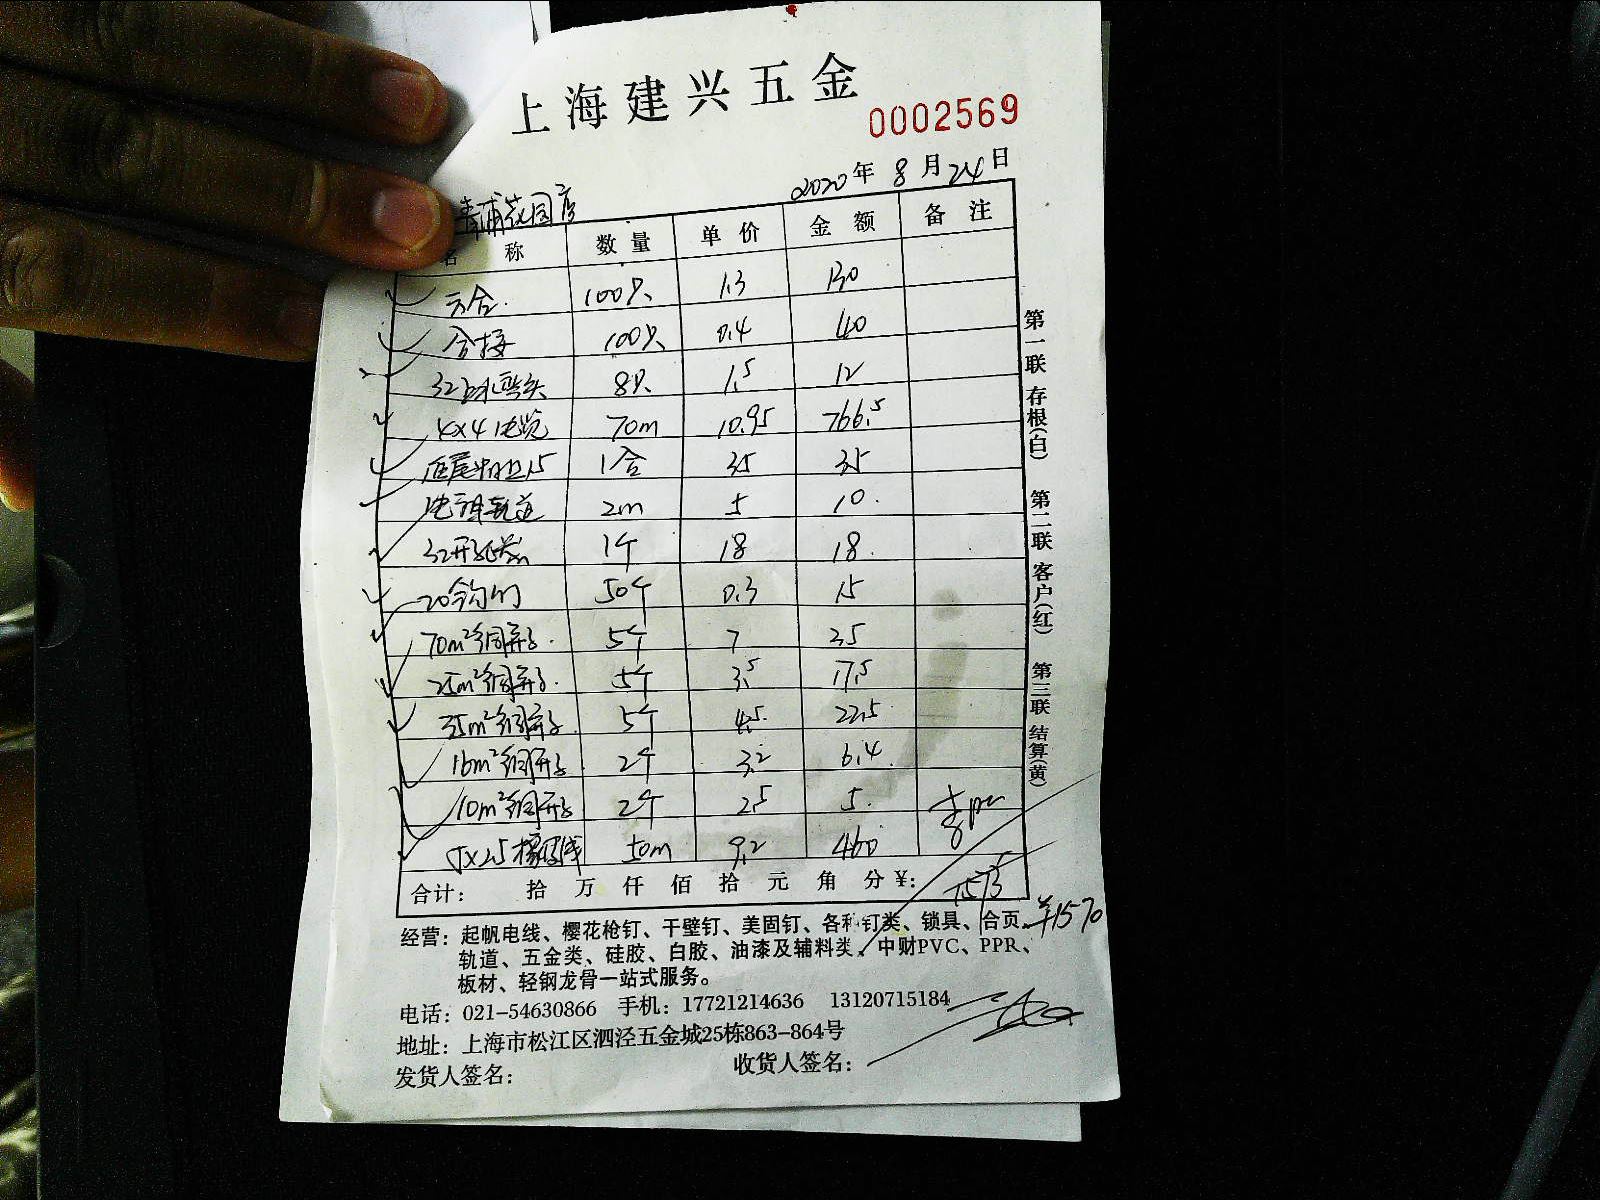 上海建兴五金
0002569
2020年 8月24日
青浦花园店
名 称 数 量 单 价 金 额 备 注
方合. 100只 1.3 130
合接 100只 0.4 40
32 弯头 8只 1.5 12
4×4电缆 70m 10.95 766.5
1.5 1合 35 35
轨道 2m 5 10.
32 1个 18 18.
20 50个 0.3 15
70m²铜鼻子. 5个 7 35
25m²铜鼻子. 5个 3.5 17.5
35m²铜鼻子. 5个 4.5 22.5
16m²铜鼻子 2个 3.2 6.4
10m²铜鼻子 2个 2.5 5.
5×2.5橡 线 50m 9.2 460
合计: 拾 万 仟 佰 拾 元 角 分 ¥: 1573
¥1570
经营: 起帆电线、樱花枪钉、干壁钉、美固钉、各种钉类、锁具、合页、
轨道、五金类、硅胶、白胶、油漆及辅料类、中财PVC、PPR、
板材、轻钢龙骨一站式服务。
电话: 021-54630866 手机: 17721214636 13120715184
地址: 上海市松江区泗泾五金城25栋863-864号
发货人签名: 收货人签名:
第一联 存根(白)
第二联 客户(红)
第三联 结算(黄)